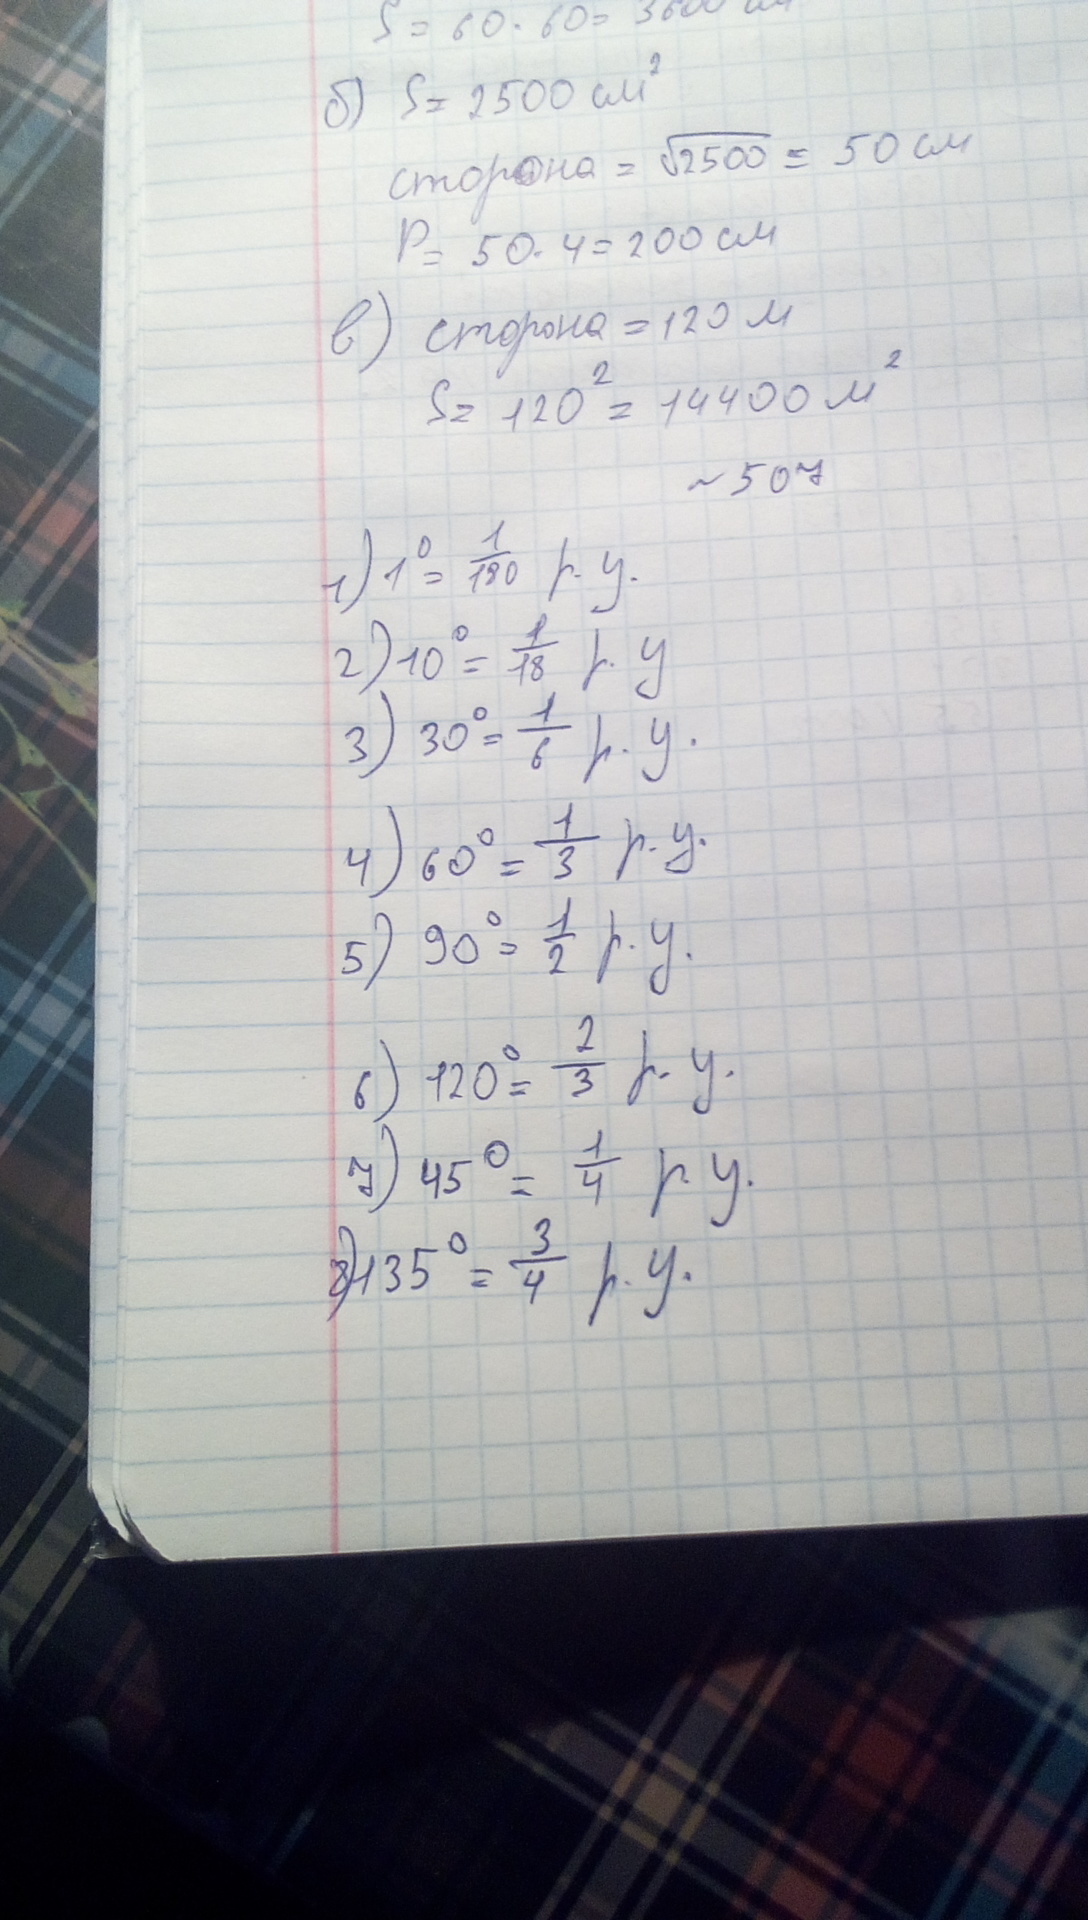 S = 60 · 60 = 3600 см
б) S = 2500 см²
сторона = √2500 = 50 см
P = 50 · 4 = 200 см
в) сторона = 120 м
S = 120² = 14400 м²
~507
1) 1° = 1/180 р. у.
2) 10° = 1/18 р. у
3) 30° = 1/6 р. у.
4) 60° = 1/3 р. у.
5) 90° = 1/2 р. у.
6) 120° = 2/3 р. у.
7) 45° = 1/4 р. у.
8) 135° = 3/4 р. у.